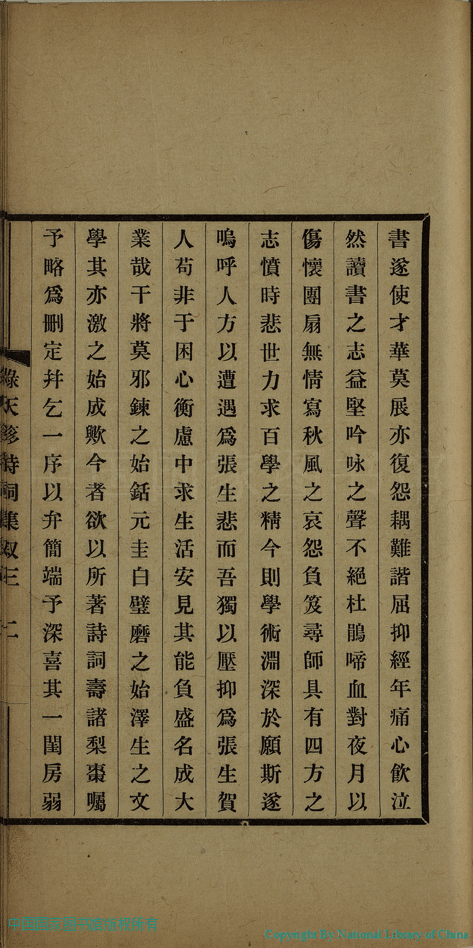 書遂使才華莫展亦復怨耦難諧屈抑經年痛心飲泣
然讀書之志益堅吟咏之聲不絕杜鵑啼血對夜月以
傷懷團扇無情寫秋風之哀怨負笈尋師具有四方之
志憤時悲世力求百學之精今則學術淵深於願斯遂
嗚呼人方以遭遇爲張生悲而吾獨以壓抑爲張生賀
人苟非于困心衡慮中求生活安見其能負盛名成大
業哉干將莫邪鍊之始銛元圭白璧磨之始澤生之文
學其亦激之始成歟今者欲以所著詩詞壽諸梨棗囑
予略爲刪定幷乞一序以弁簡端予深喜其一閨房弱
天 詩詞集 三 二
Copyright By National Library of China